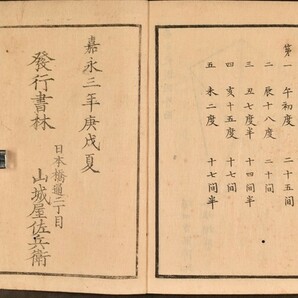 第一 午初度 二十五间
二 辰十八度 二十间
三 丑七度半 十四间半
四 亥十五度 十七间
五 未二度 十七间半
嘉永三年庚戌夏
發行書林
日本橋通二丁目
山城屋佐兵衛